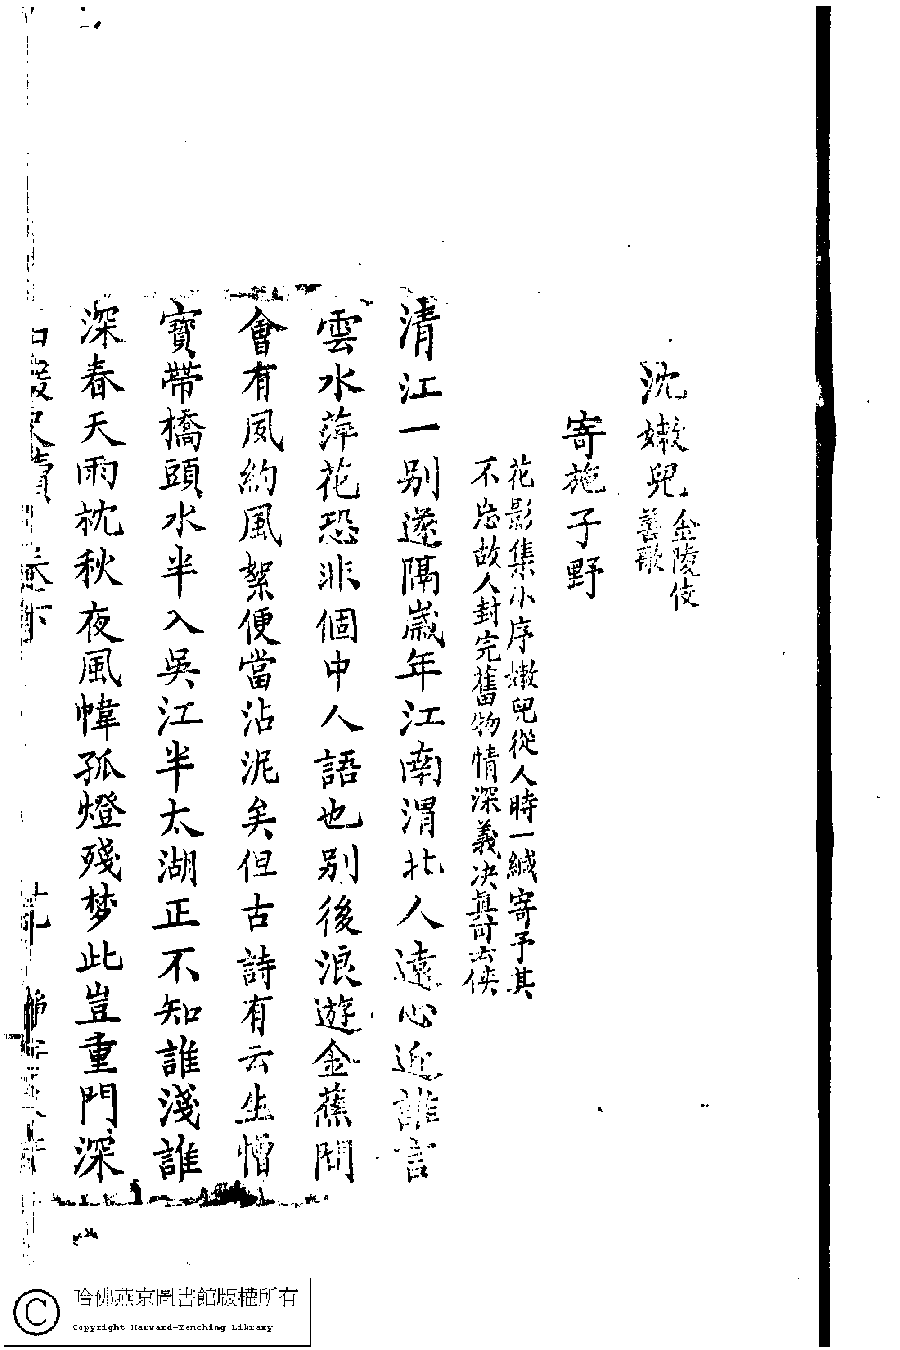 沈嫩兒 金陵伎
善歌
寄施子野
花影集小序嫩兒從人時一緘寄予其
不忘故人封完舊物情深義决真可云俠
清江一别遂隔歲年江南渭北人遠心近誰言
雲水萍花恐非個中人語也别後浪遊金蕉間
會有風約風絮便當沾泥矣但古詩有云生憎
寶帶橋頭水半入吳江半太湖正不知誰淺誰
深春天雨枕秋夜風幃孤燈殘梦此豈重門深
尺牘 卷下
哈佛燕京圖書館版權所有
Copyright Harvard-Yenching Library